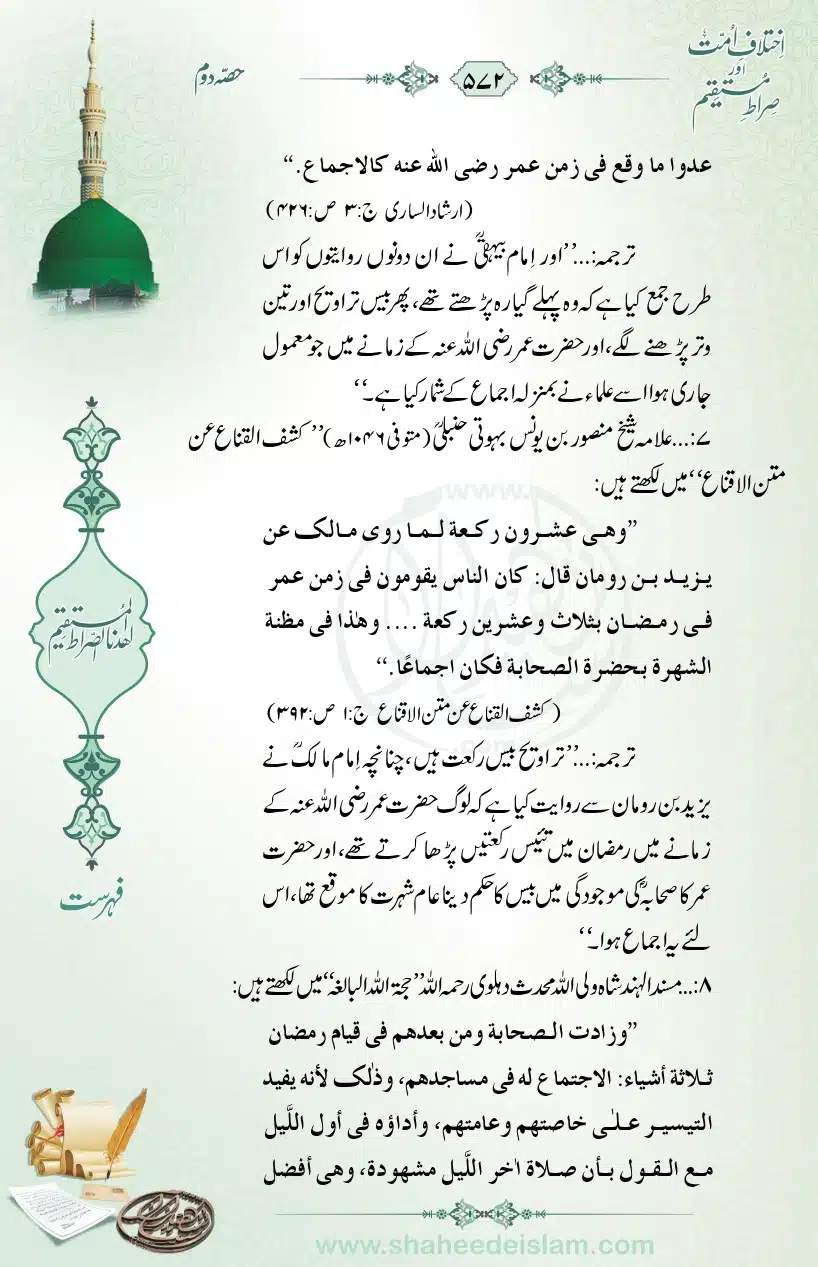 اِختلافِ اُمّت
اور
صِراطِ مُستقیم
۵۷۲
حصّہ دوم
عدوا ما وقع فی زمن عمر رضی اللہ عنہ کالاجماع.“
(ارشاد الساری ج:۳ ص:۴۲۶)
ترجمہ:...’’اور اِمام بیہقیؒ نے ان دونوں روایتوں کو اس
طرح جمع کیا ہے کہ وہ پہلے گیارہ پڑھتے تھے، پھر بیس تراویح اور تین
وتر پڑھنے لگے، اور حضرت عمر رضی اللہ عنہ کے زمانے میں جو معمول
جاری ہوا اسے علماء نے بمنزلہ اجماع کے شمار کیا ہے۔‘‘
۷:...علامہ شیخ منصور بن یونس بہوتی حنبلیؒ (متوفی ۱۰۴۶ھ) ’’کشف القناع عن
متن الاقناع‘‘ میں لکھتے ہیں:
”وھی عشرون رکعة لما روی مالک عن
یزید بن رومان قال: کان الناس یقومون فی زمن عمر
فی رمضان بثلاث وعشرین رکعة .... وھٰذا فی مظنة
الشھرة بحضرة الصحابة فکان اجماعًا.“
(کشف القناع عن متن الاقناع ج:۱ ص:۳۹۲)
ترجمہ:...’’تراویح بیس رکعت ہیں، چنانچہ اِمام مالکؒ نے
یزید بن رومان سے روایت کیا ہے کہ لوگ حضرت عمر رضی اللہ عنہ کے
زمانے میں رمضان میں تئیس رکعتیں پڑھا کرتے تھے، اور حضرت
عمر کا صحابہؓ کی موجودگی میں بیس کا حکم دینا عام شہرت کا موقع تھا، اس
لئے یہ اجماع ہوا۔‘‘
۸:...مسند الہند شاہ ولی اللہ محدث دہلوی رحمہ اللہ ’’حجۃ اللہ البالغہ‘‘ میں لکھتے ہیں:
”وزادت الصحابة ومن بعدھم فی قیام رمضان
ثلاثة أشیاء: الاجتماع لہ فی مساجدھم، وذٰلک لأنہ یفید
التیسیر علٰی خاصتھم وعامتھم، وأداؤہ فی أول اللَّیل
مع القول بأن صلاة اٰخر اللَّیل مشھودة، وھی أفضل
اِهْدِنَا الصِّرَاطَ الْمُسْتَقِیْمَ
فہرست
www.shaheedeislam.com